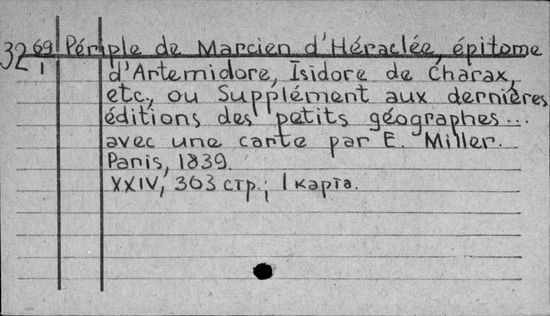 32 69/1 Périple de Marcien d'Héraclée, épitome
d'Artemidore, Isidore de Charax,
etc., ou Supplément aux dernières
éditions des petits géographes...
avec une carte par E. Miller.
Paris, 1839.
XXIV, 363 стр.; 1 карта.